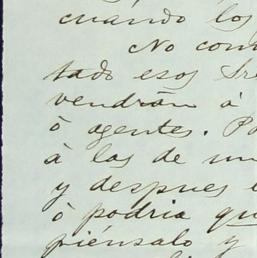 cuando los
No con
tado esos Sre
vendrán á
ó agentes. Po
á las de un
y despues e
ó podria qu
piénsalo y